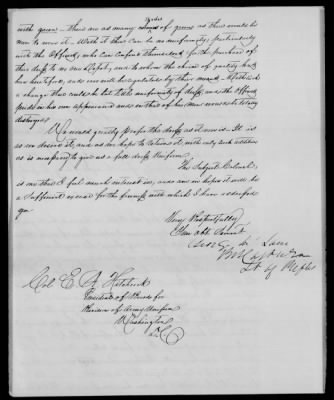 with green – there are as many shades of green as there would be
men to wear it. With it there can be no uniformity, particularly
with the Officers, who can confine themselves for the purchase of
this stuff to no one Depot, and to whom the choice of variety had
been tempting, and is now not by regulations by this means. With such
a change there could be but little uniformity of dress, and the Officers
pride in his own appearance and in that of his men would be totally
destroyed.
We would greatly prefer the dress as it now is. It is
as we desire it, and we hope to retain it, with only such additions
as is necessary to give us a full dress Uniform.
The Subject, Colonel,
is one that I feel much interest in, and am in hopes it will be
a sufficient excuse for the freeness with which I have addressed
you
Very Respectfully
Your obt Servt
Lane
Col. E. A. Hitchcock
President of Board for
Revision of Army Uniform
Washington
D.C.